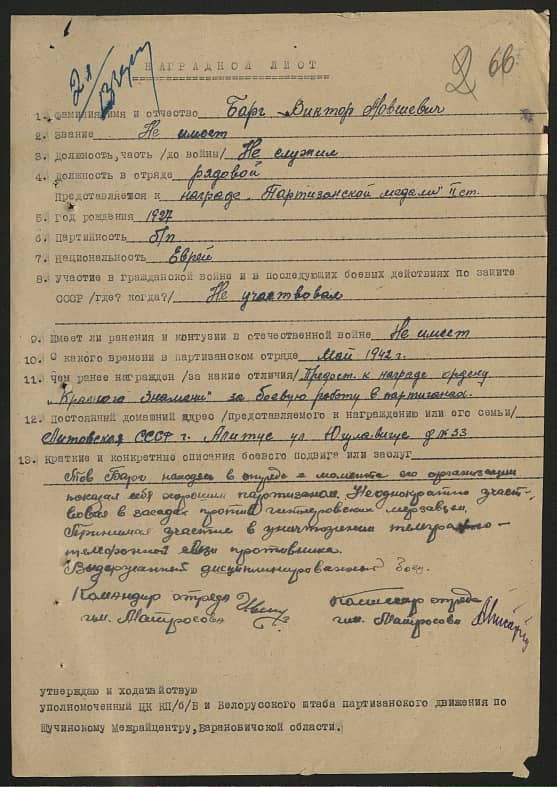 2 66
НАГРАДНОЙ ЛИСТ
1. Фамилия, имя и отчество Барг Виктор Мовшевич
2. Звание Не имеет
3. Должность, часть /до войны/ Не служил
4. Должность в отряде рядовой
Представляется к награде "Партизанской медали" II ст.
5. Год рождения 1927
6. Партийность б/п
7. Национальность Еврей
8. Участие в гражданской войне и в последующих боевых действиях по защите
СССР /где? когда?/ Не участвовал
9. Имеет ли ранения и контузии в отечественной войне Не имеет
10. С какого времени в партизанском отряде май 1942 г.
11. Чем ранее награжден /за какие отличия/ Предст. к награде ордену
"Красного Знамени" за боевую работу в партизанах.
12. Постоянный домашний адрес /представляемого к награждению или его семьи/
Литовская СССР г. Алитус ул. д № 33
13. Краткие и конкретные описания боевого подвига или заслуг
Тов Барг находясь в отряде с момента его организации
показал себя хорошим партизаном. Неоднократно участ-
вовал в засадах против гитлеровских мерзавцев.
Принимал участие в уничтожении телеграфно-
телефонной связи противника.
Выдержанный дисциплинированный боец.
Командир отряда Комиссар отряда
им. Матросова им. Матросова
утверждаю и ходатайствую
уполномоченный ЦК КП/б/Б и Белорусского штаба партизанского движения по
Щучинскому Межрайцентру, Барановичской области.